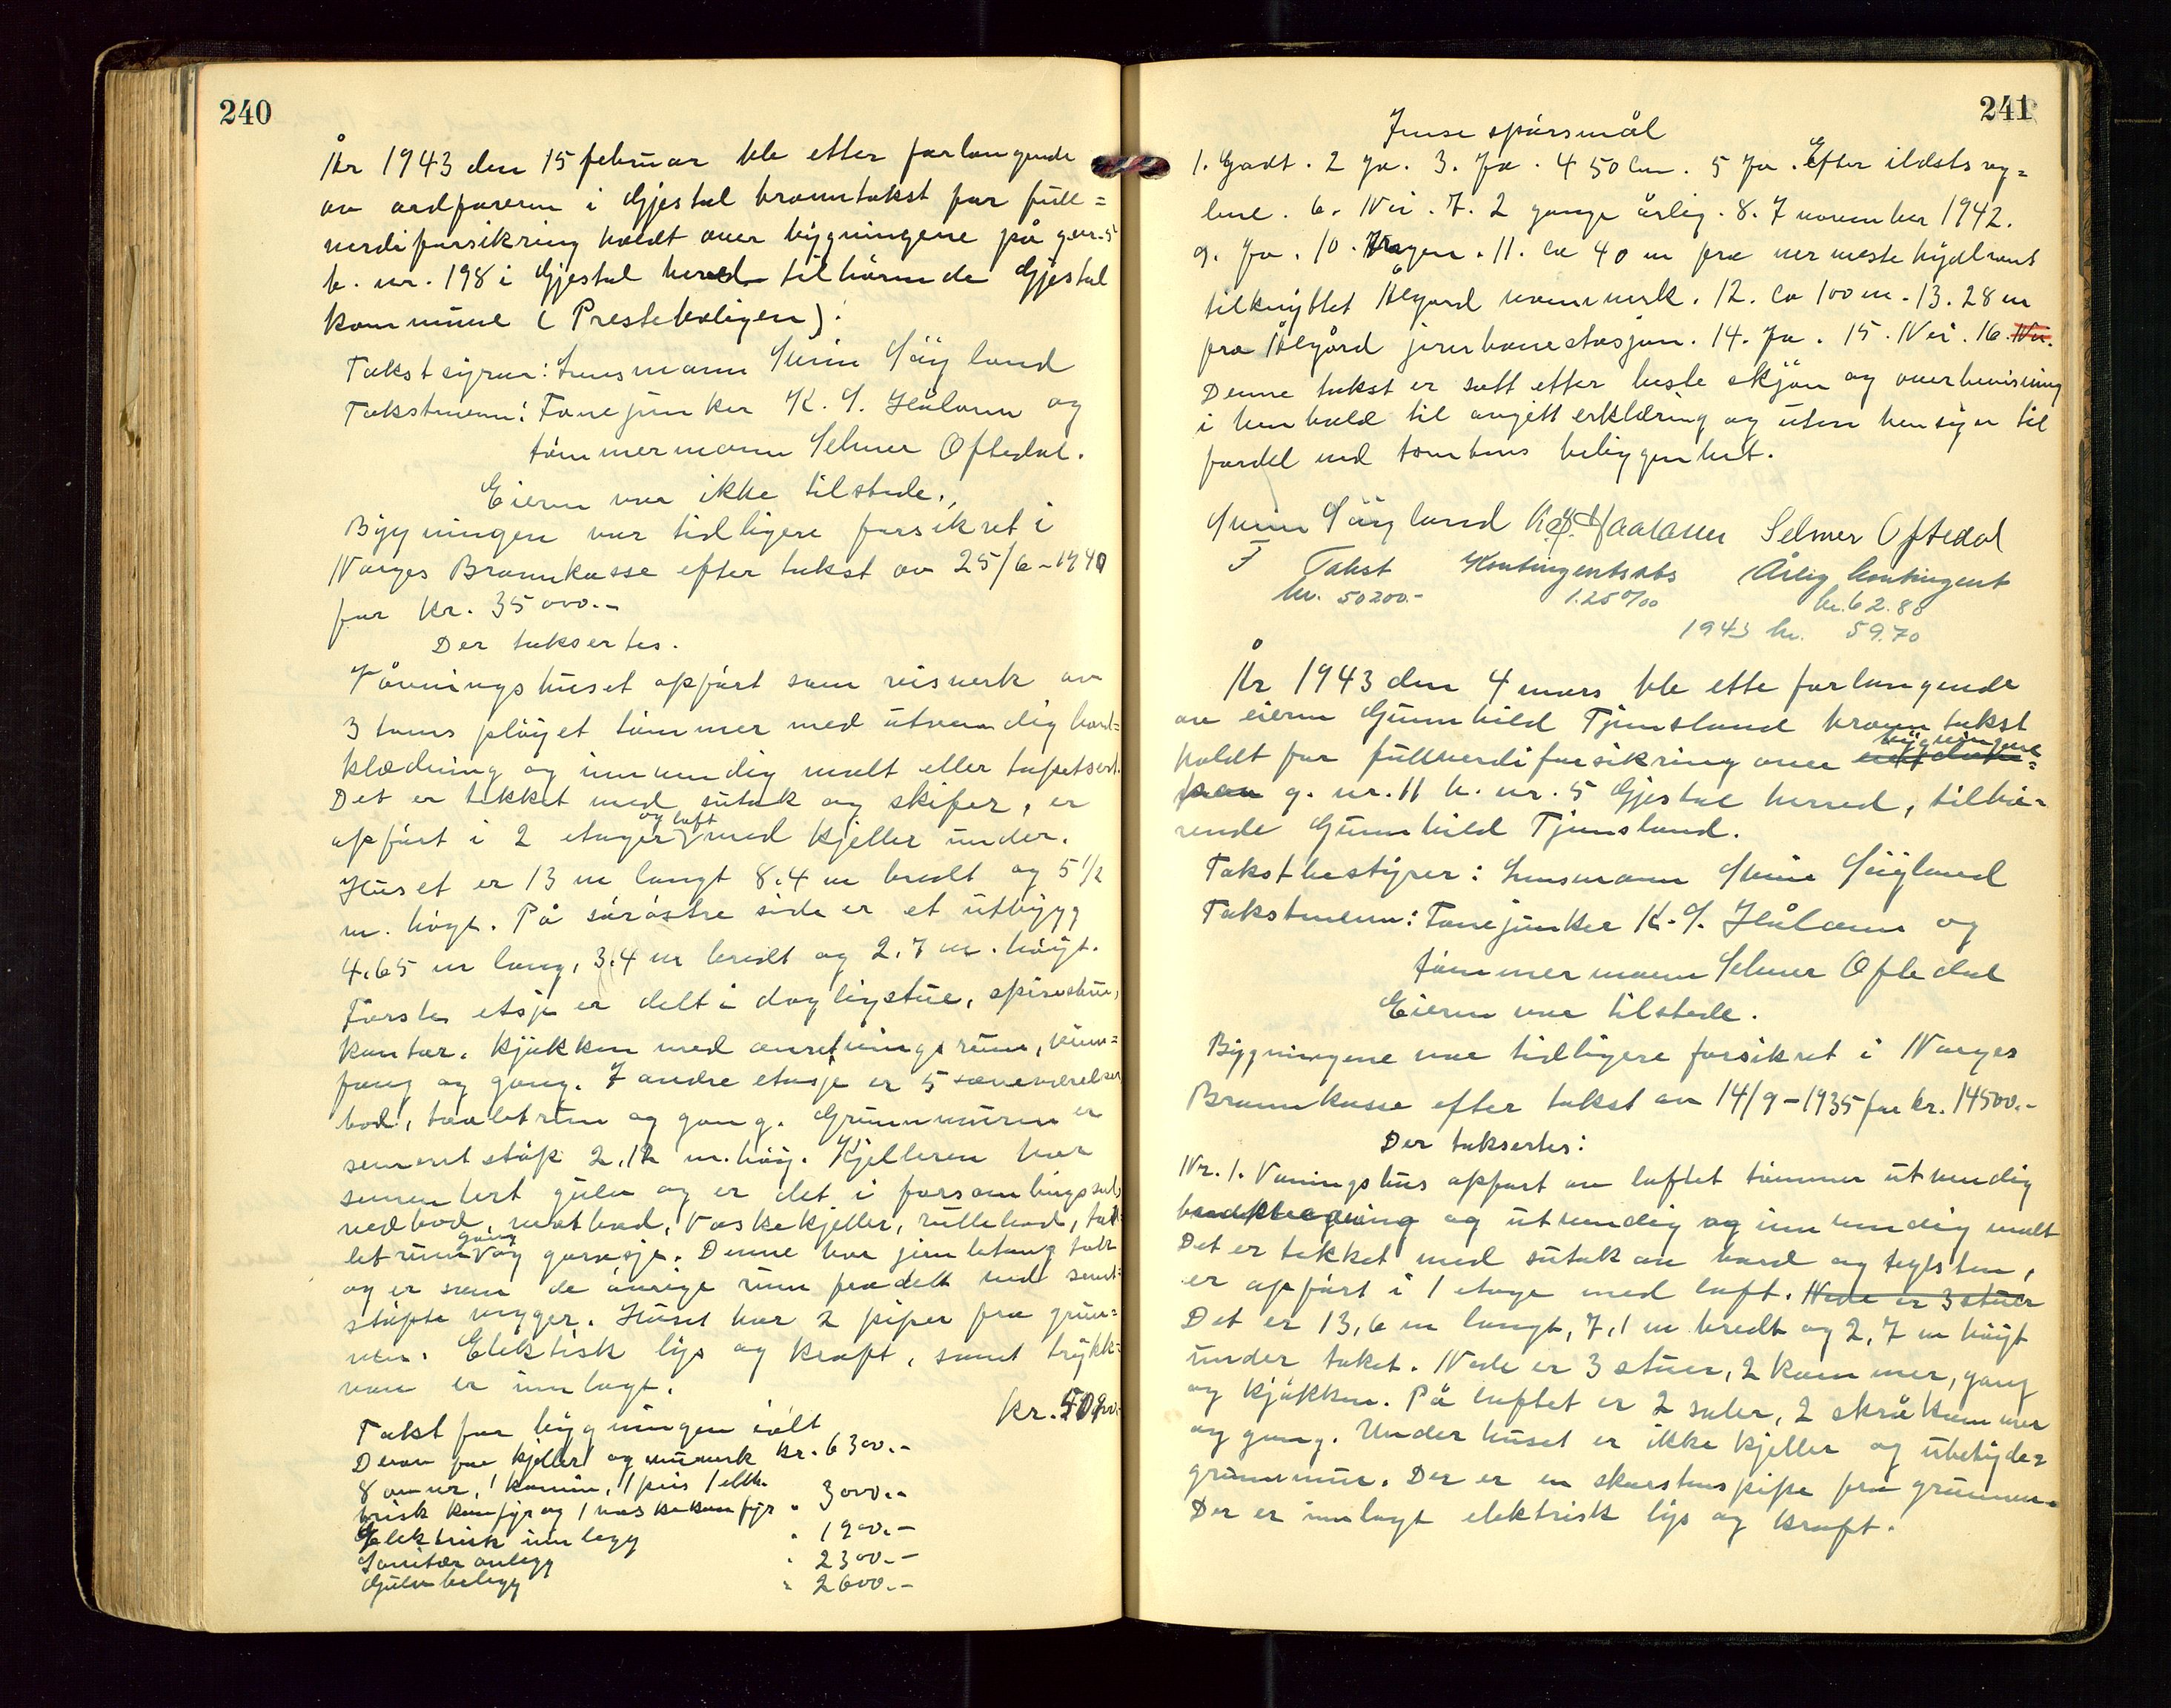 240
År 1943 den 15 februar ble etter forlangende
av ordføreren i Gjestal branntakst for full=
verdiforsikring holdt over bygningene på g.nr. 5
b. nr. 198 i Gjestal herred tilhörende Gjestal
kommune (Presteboligen).
Takststyrer: Lensmann Svein Söyland
Takstmenn: Fanejunker K. S. Hålann og
tömmermann Selmer Oftedal.
Eieren var ikke tilstede.
Bygningen var tidligere forsikret i
Norges Brannkasse efter takst av 25/6-1940
for kr. 35000.-
Der taksertes.
Våningshuset opfört som reisverk av
3 toms plöyet tömmer med utvendig bord=
klædning og innvendig malt eller tapetsert.
Det er tekket med sutak og skifer, er
opfört i 2 etager og loft med kjeller under.
Huset er 13 m langt 8.4 m bredt og 5 1/2
m. högt. På söröstre side er et utbygg
4,65 m lang, 3,4 m bredt og 2,7 m. höyt.
Förste etasje er delt i dagligstue, spisestue,
kontor, kjökken med anretningsrum, vinn=
fang og gang. I andre etasje er 5 soveværelser
bod, toalettrum og gang. Grunnmuren er
sementstöp 2,12 m. höy. Kjelleren har
sementert gulv og er delt i forsamlingssal,
vedbod, matbod, vaskekjeller, rullebod, toa=
lettrum gang og garasje. Denne har jernbetong tak
og er som de övrige rum fradelt med sement=
stöpte vegger. Huset har 2 piper fra grun=
nen. Elektrisk lys og kraft, samt trykk=
vann er innlagt.
Takst for bygningen ialt kr. 50200.-
Derav for kjeller og murverk kr. 6300.-
8 ovner, 1 kamin, 1 peis 1 elek.
trisk komfyr og 1 vaskekomfyr " 3000.-
Elektrisk innlegg " 1900.-
Sanitær anlegg " 2300.-
Gulvbelegg " 2600.-
241
Jmse spörsmål
1. Godt. 2 Ja. 3. Ja. 4 50 cm. 5 Ja. Efter ildstsreg=
lene. 6. Nei. 7. 2 gange årlig. 8. 7 november 1942.
9. Ja. 10. Ingen. 11. ca 40 m fra nermeste hydrant
tilknyttet Ålgård vannverk. 12. Ca 100 m. 13. 28 m
fra Ålgård jernbanestasjon. 14. Ja. 15. Nei. 16. Nei.
Denne takst er satt etter beste skjön og overbevisning
i henhold til avgitt erklæring og uten hensyn til
fordel ved tomtens beliggenhet.
Svein Söyland K. S. Haalann Selmer Oftedal
F Takst Kontingentsats Årlig kontingent
kr. 50200.- 1.25 ‰ kr. 62.80
1943 kr. 59.70
År 1943 den 4 mars ble ette forlangende
av eieren Gunnhild Tjensland branntakst
holdt for fullverdiforsikring over bygningene
på g. nr. 11 b. nr. 5 Gjestal herred, tilhö=
rende Gunnhild Tjensland.
Takstbestyrer: Lensmann Svein Söyland
Takstmenn: Fanejunker K. S. Hålann og
tömmermann Selmer Oftedal
Eieren var tilstede.
Bygningene var tidligere forsikret i Norges
Brannkasse efter takst av 14/9-1935 for kr. 14500.-
Der taksertes:
Nr. 1. Vaningshus oppfört av laftet tömmer utvendig
bordklædning og utvendig og innvendig malt
Det er tekket med sutak av bord og teglsten,
er opfört i 1 etage med loft. Nede er 3 stuer
Det er 13,6 m langt, 7,1 m bredt og 2,7 m höyt
under taket. Nede er 3 stuer, 2 kammer, gang
og kjökken. På loftet er 2 saler, 2 skråkammer
og gang. Under huset er ikke kjeller og ubetyde=
grunnmur. Der er en skorstenspipe fra grunnen.
Der er innlagt elektrisk lys og kraft.